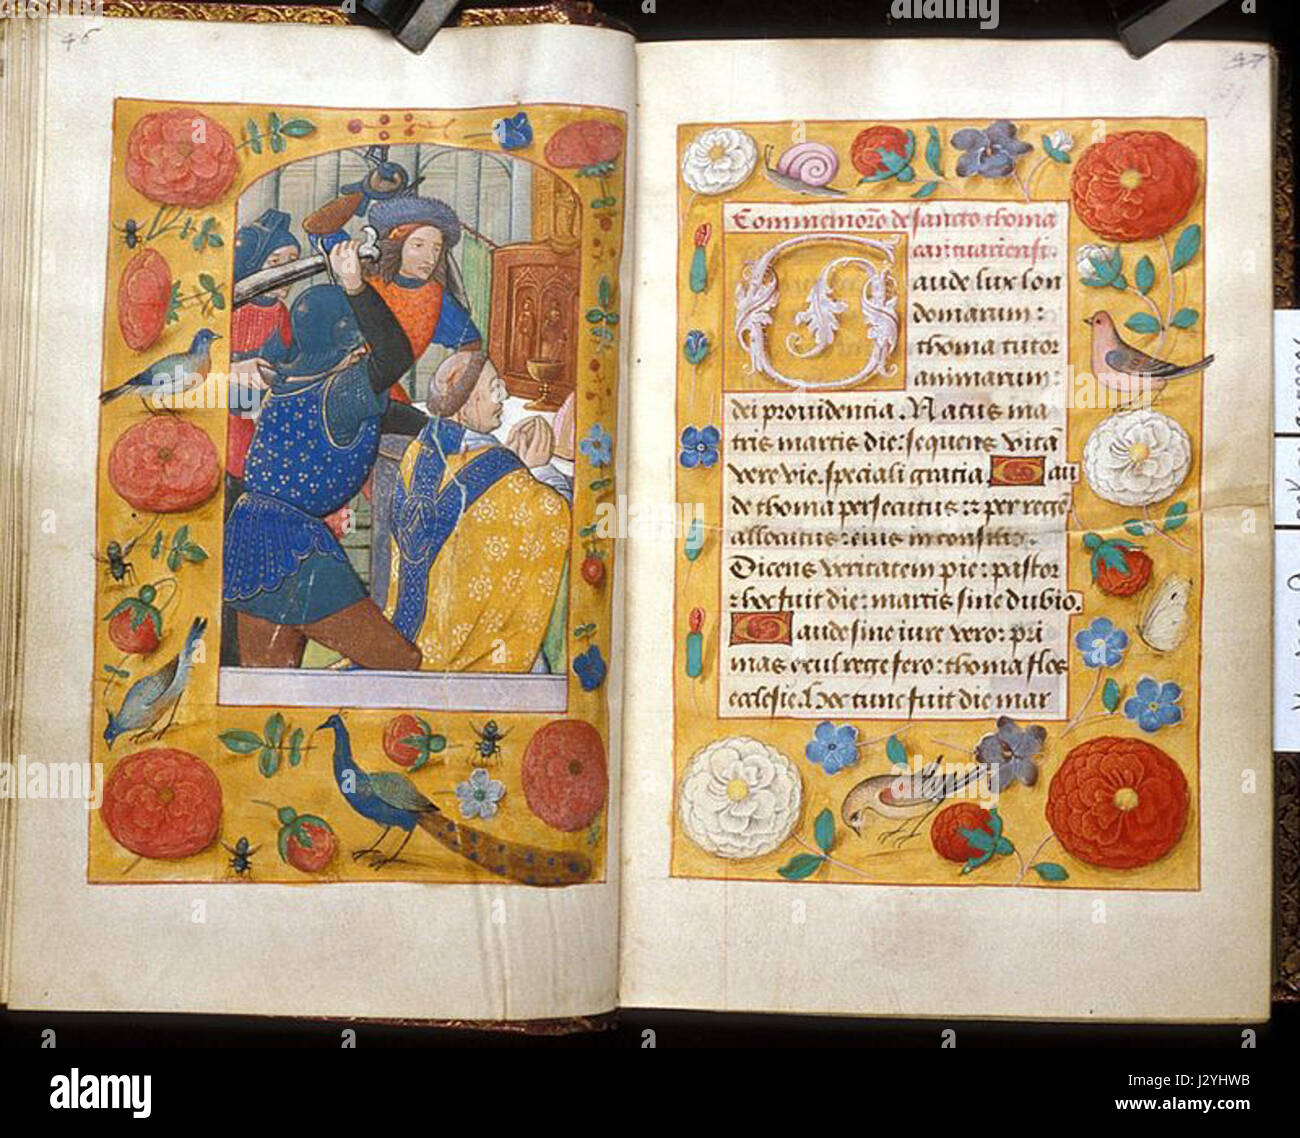 46
47
39
Commemoro de sancto thoma
cantuariensi
Gaude lux lon
domarum:
thoma tutor
animarum:
dei providencia. Natus ma
tris martis die: sequens vitā
vere vie. speciali gratia Gau
de thoma persecutus: et per rege
allocutus: eius in consilio
Dicens veritatem pie: pastor
et hoc fuit die: martis sine dubio.
Gaude sine iure vero: pri
mas exul rege fero: thoma flos
ecclesie. Hoc tunc fuit die mar
a alamy stock photo
J2YHWB
www.alamy.com